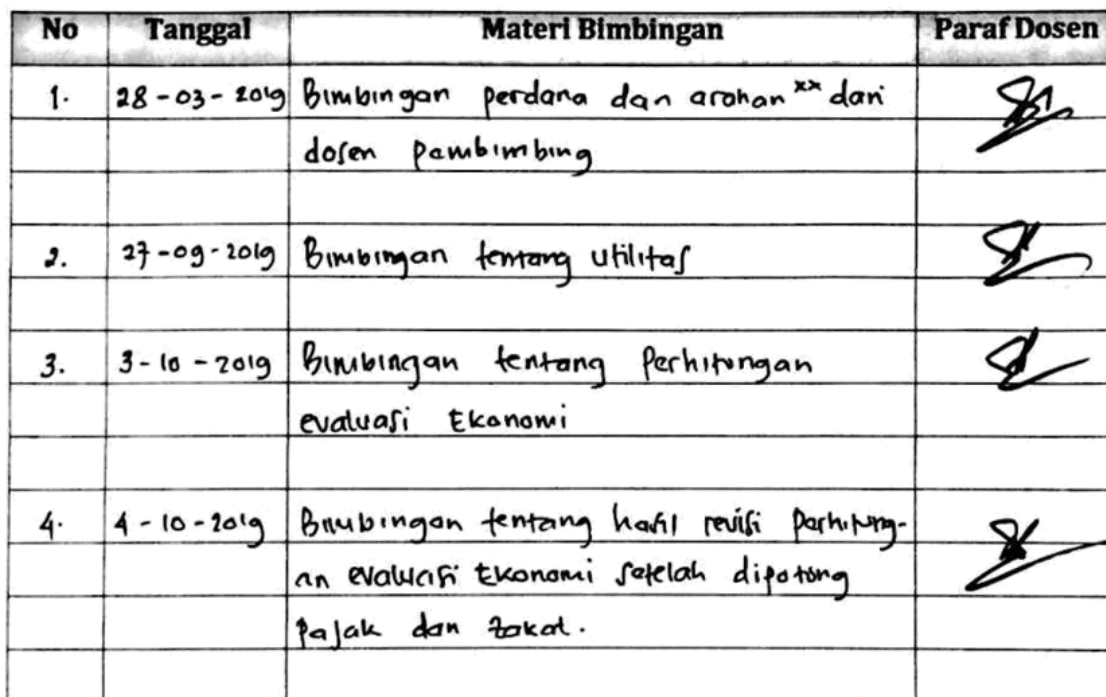 No Tanggal Materi Bimbingan Paraf Dosen
1. 28-03-2019 Bimbingan perdana dan arahan xx dari
dosen pembimbing
2. 27-09-2019 Bimbingan tentang utilitas
3. 3-10-2019 Bimbingan tentang Perhitungan
evaluasi Ekonomi
4. 4-10-2019 Bimbingan tentang hasil revisi perhitung-
an evaluasi Ekonomi setelah dipotong
pajak dan zakat.